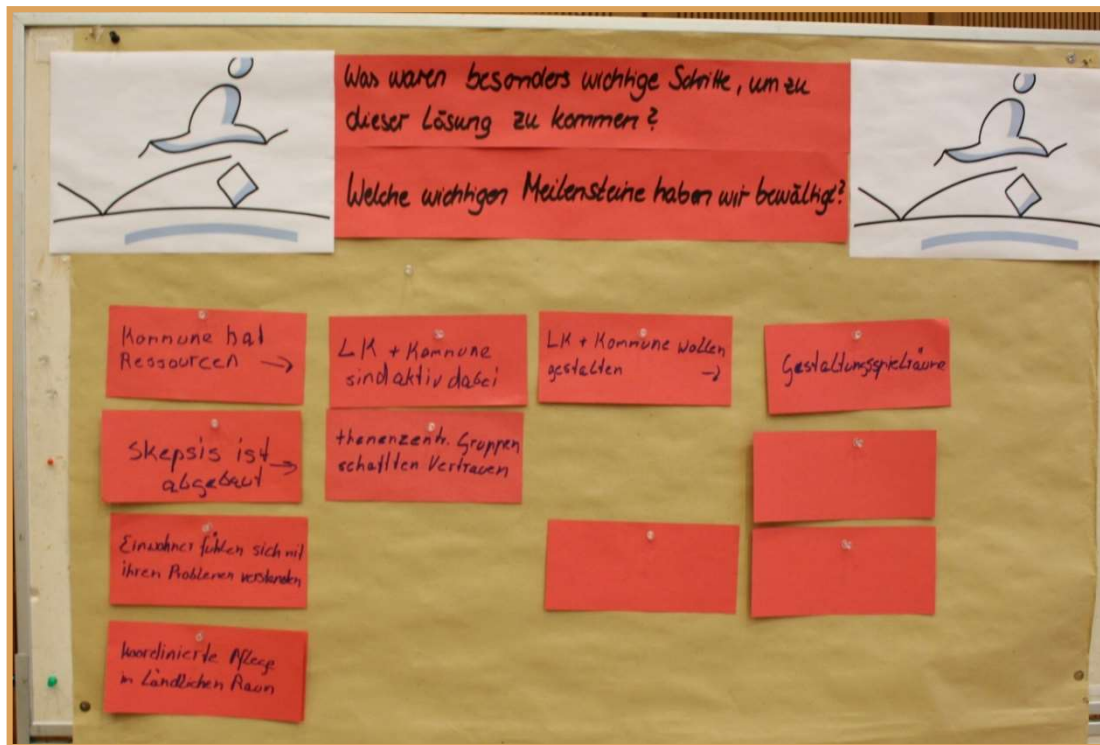 Was waren besonders wichtige Schritte, um zu
dieser Lösung zu kommen?
Welche wichtigen Meilensteine haben wir bewältigt?
Kommune hat
Ressourcen →
Skepsis ist →
abgebaut
Einwohner fühlen sich mit
ihren Problemen verstanden
koordinierte Pflege
in Ländlichen Raum
LK + Kommune
sind aktiv dabei
themenzentr. Gruppen
schafften Vertrauen
LK + Kommune wollen
gestalten →
Gestaltungsspielräume